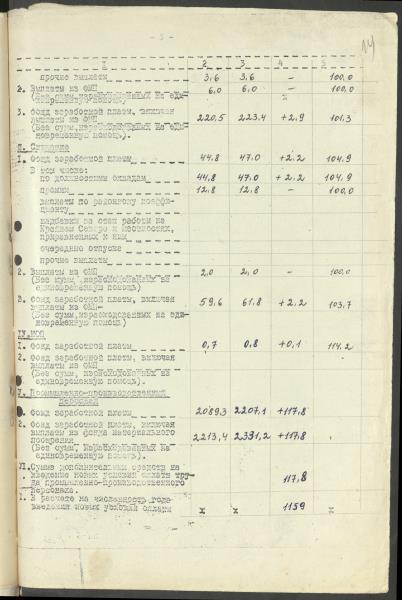 - 3 -
14
1 2 3 4 5
прочие выплаты 3,6 3,6 - 100,0
2. Выплаты из ФМП 6,0 6,0 - 100,0
(Без сумм, израсходованных на еди-
новременную помощь)
3. Фонд заработной платы, включая
выплаты из ФМП 220,5 223,4 +2,9 101,3
(Без сумм, израсходованных на еди-
новременную помощь).
1. Фонд заработной платы 44,8 47,0 +2,2 104,9
В том числе:
по должностным окладам 44,8 47,0 +2,2 104,9
премии 12,8 12,8 - 100,0
выплаты по районному коэффи-
циенту
надбавки за стаж работы на
Крайнем Севере и местностях,
приравненных к ним
очередные отпуска
прочие выплаты
2. Выплаты из ФМП 2,0 2,0 - 100,0
(Без сумм, израсходованных на
единовременную помощь)
3. Фонд заработной платы, включая
выплаты из ФМП 59,6 61,8 +2,2 103,7
(Без сумм, израсходованных на еди-
новременную помощь)
IV. МОП
1. Фонд заработной платы 0,7 0,8 +0,1 114,2
2. Фонд заработной платы, включая
выплаты из ФМП
(Без сумм, израсходованных на
единовременную помощь).
V. Промышленно-производственный
персонал
1. Фонд заработной платы 2089,3 2207,1 +117,8
2. Фонд заработной платы, включая
выплаты из фонда материального
поощрения 2213,4 2331,2 +117,8
(Без сумм, израсходованных на
единовременную помощь).
VI. Сумма дополнительных средств на
введение новых условий оплаты тру-
да промышленно-производственного 117,8
персонала.
1. В расчете на численность года
введения новых условий оплаты х х 1159 х